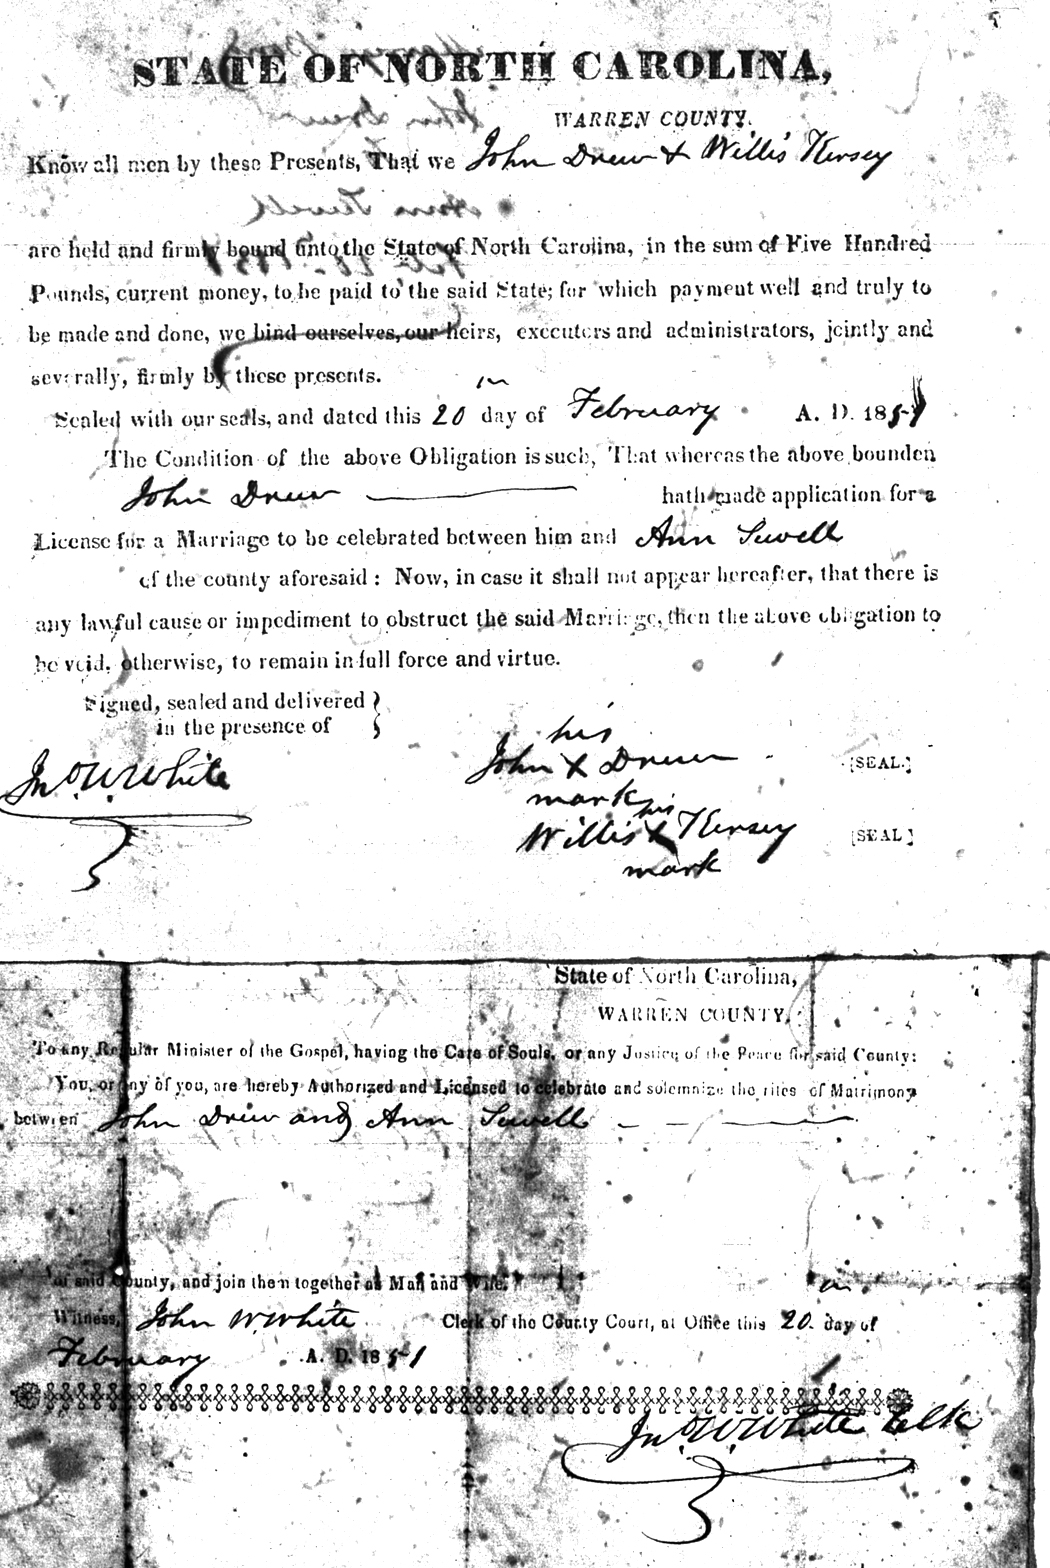 STATE OF NORTH CAROLINA,
WARREN COUNTY.
Know all men by these Presents, That we John Drew & Willis Kersey
are held and firmly bound unto the State of North Carolina, in the sum of Five Hundred
Pounds, current money, to be paid to the said State; for which payment well and truly to
be made and done, we bind ourselves, our heirs, executors and administrators, jointly and
severally, firmly by these presents.
Sealed with our seals, and dated this 20 day of February A. D. 1851
The Condition of the above Obligation is such, That whereas the above bounden
John Drew hath made application for a
License for a Marriage to be celebrated between him and Ann Sewell
of the county aforesaid : Now, in case it shall not appear hereafter, that there is
any lawful cause or impediment to obstruct the said Marriage, then the above obligation to
be void, otherwise, to remain in full force and virtue.
Signed, sealed and delivered
in the presence of
his
Jno. W. White John X Drew [SEAL.]
mark
his
Willis X Kersey [SEAL]
mark
State of North Carolina,
WARREN COUNTY.
To any Regular Minister of the Gospel, having the Care of Souls, or any Justice of the Peace for said County:
You, or any of you, are hereby Authorized and Licensed to celebrate and solemnize the rites of Matrimony
between John Drew and Ann Sewell
of said County, and join them together as Man and Wife.
Witness, John W. White Clerk of the County Court, at Office this 20 day of
February A. D. 1851
Jno. W. White Clk